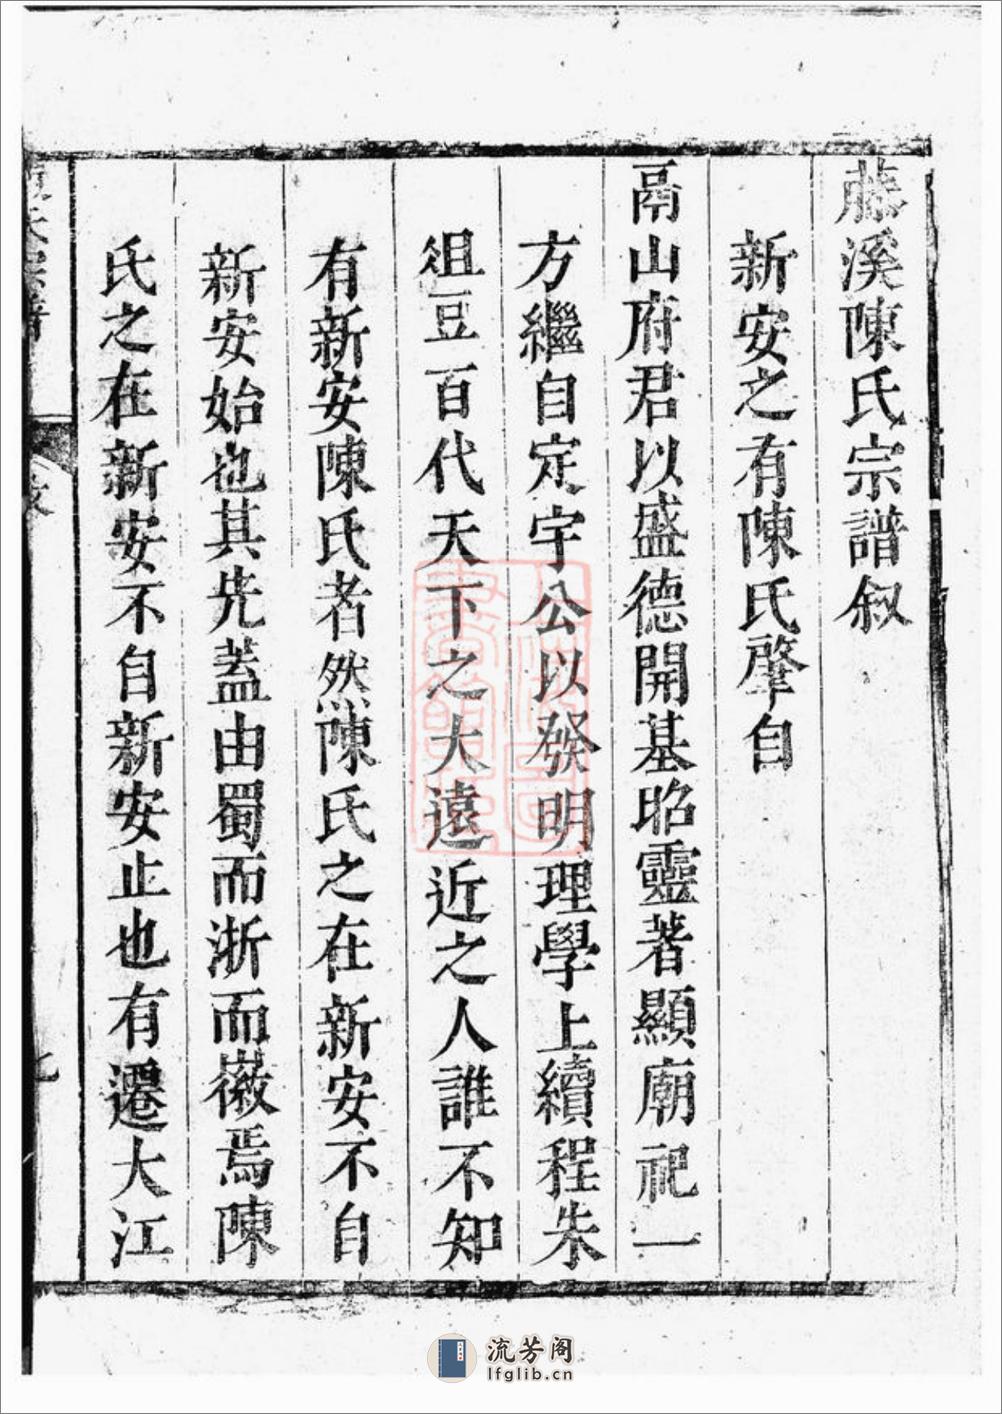 藤溪陳氏宗譜叙
新安之有陳氏肇自
鬲山府君以盛德開基昭靈著顯廟祀一
方繼自定宇公以發明理學上續程朱
俎豆百代天下之大遠近之人誰不知
有新安陳氏者然陳氏之在新安不自
新安始也其先蓋由蜀而浙而徽焉陳
氏之在新安不自新安止也有遷大江
流芳阁
lfglib.cn